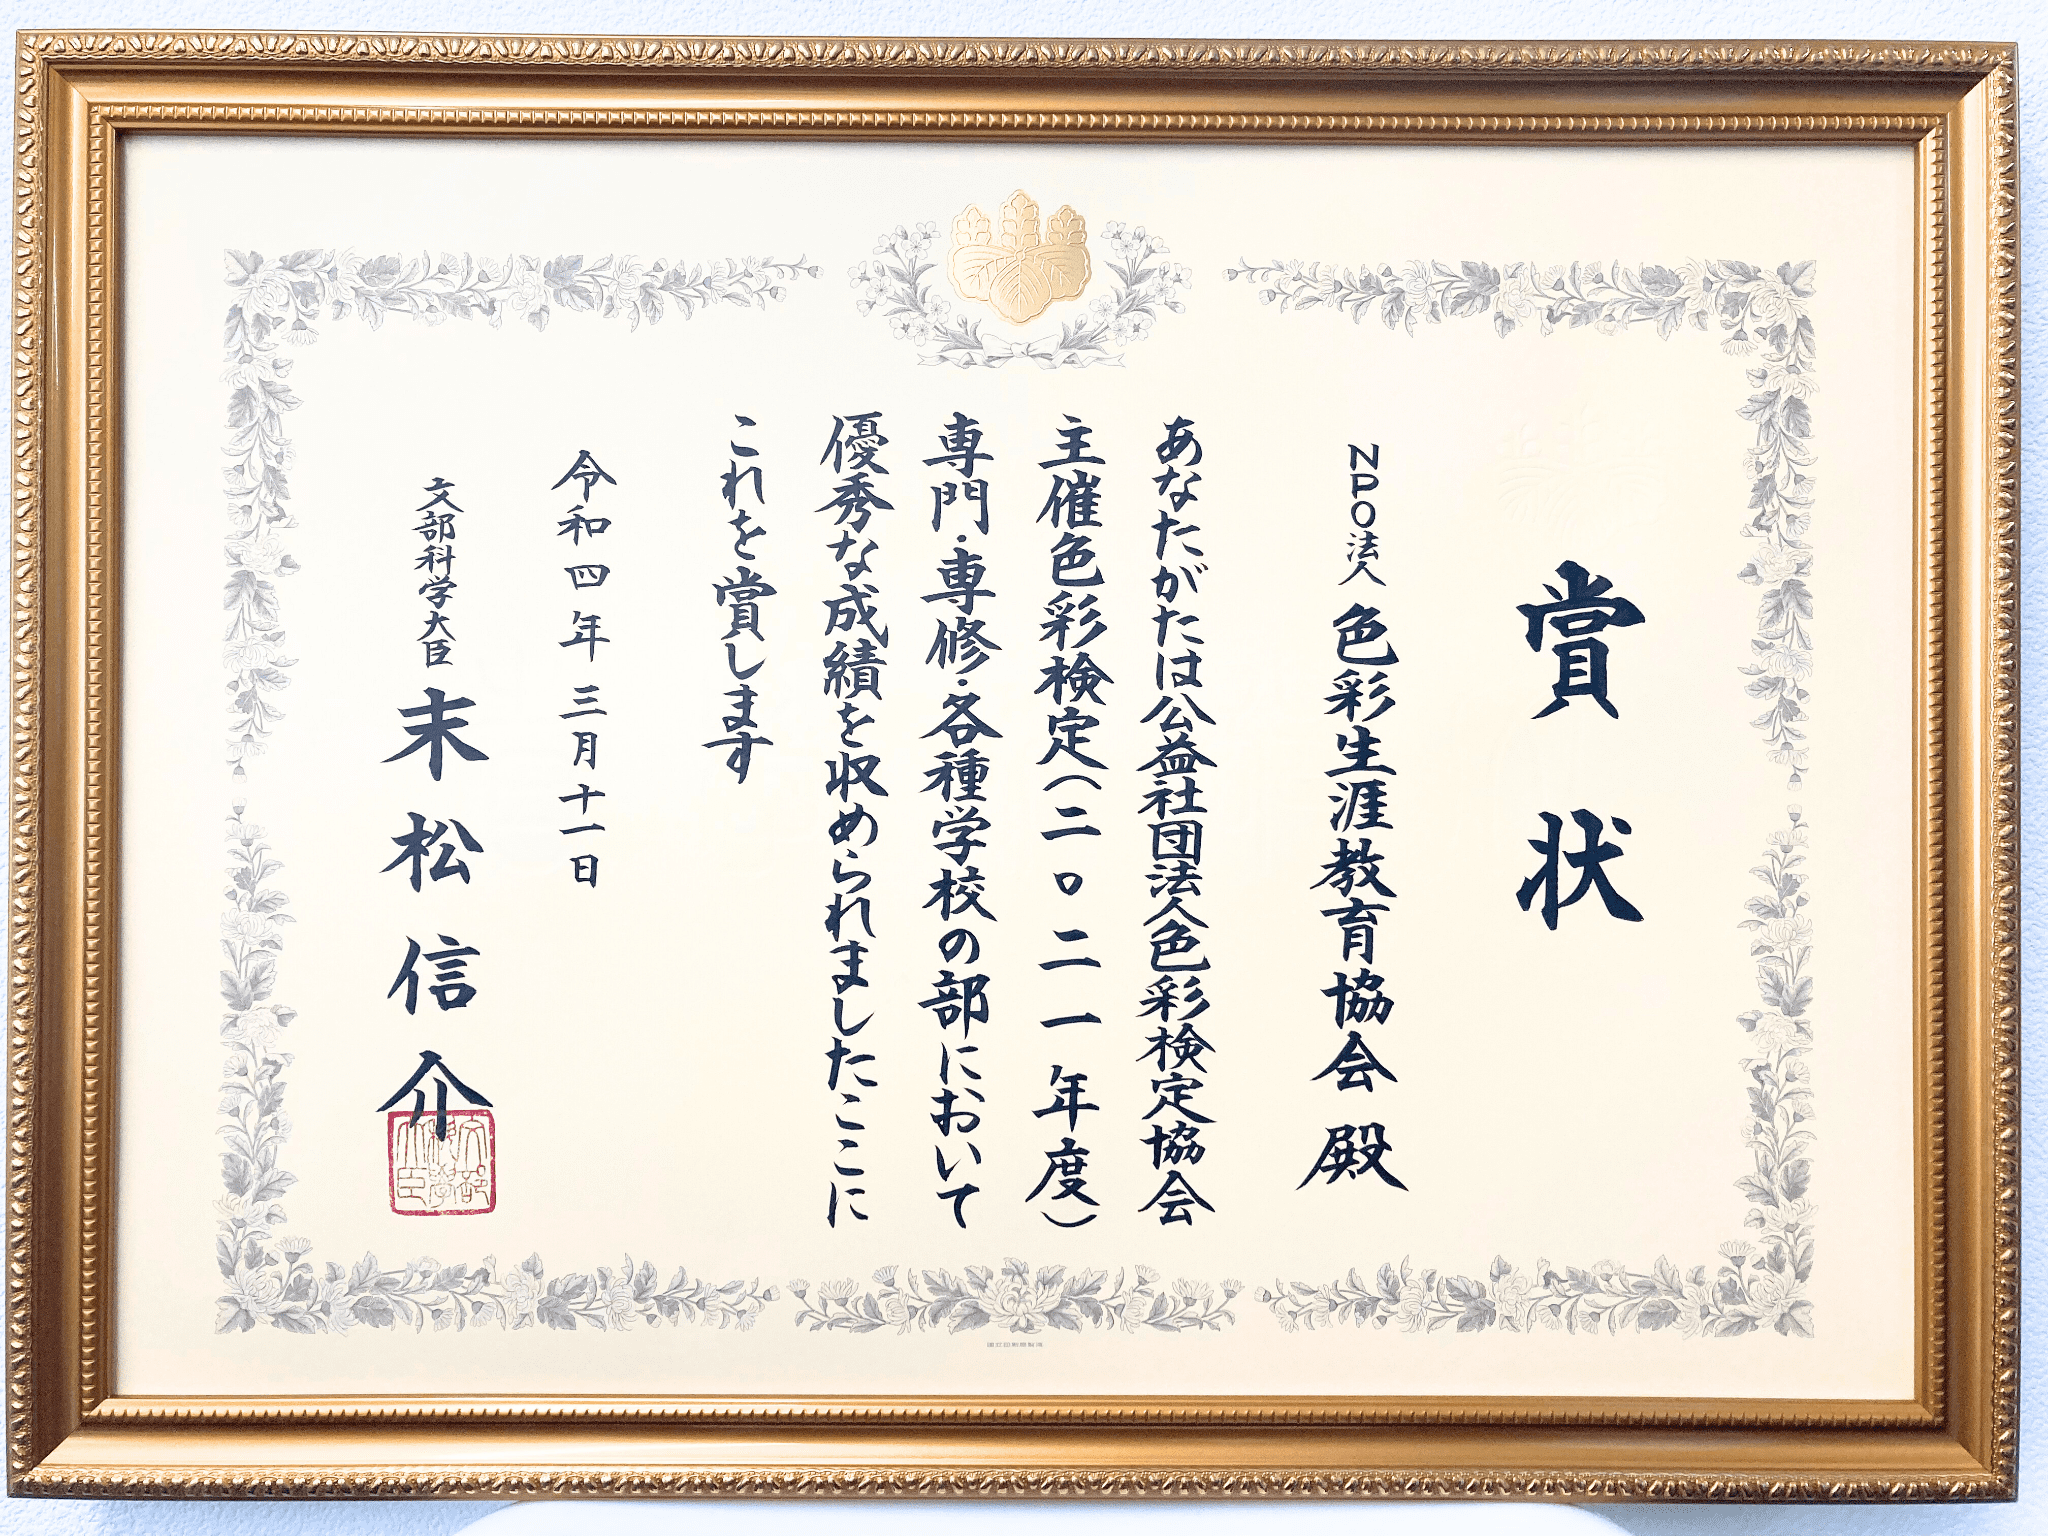 賞状
NPO法人 色彩生涯教育協会 殿
あなたがたは公益社団法人色彩検定協会
主催色彩検定(二〇二一年度)
専門・専修・各種学校の部において
優秀な成績を収められましたここに
これを賞します
令和四年三月十一日
文部科学大臣 末松信介
文部科学大臣
国立印刷局製造